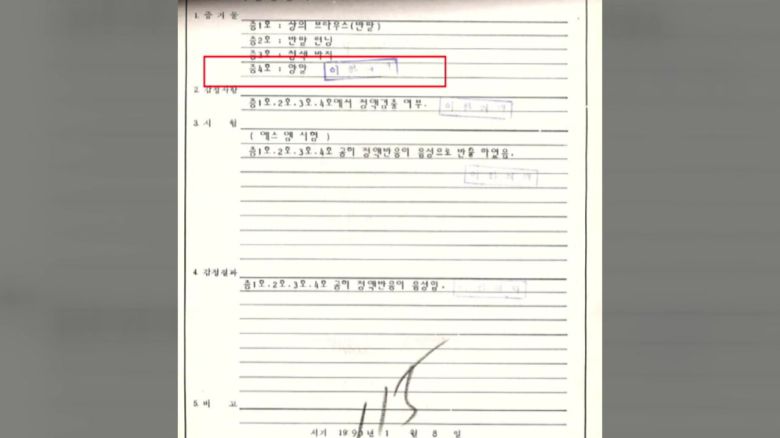 1. 증 거 물
증1호 : 상의 브라우스(반팔)
증2호 : 반팔 런닝
증3호 : 청색 바지
증4호 : 양말
2. 감정사항
증1호.2호.3호.4호에서 정액검출 여부.
3. 시 험
( 에스 엠 시험 )
증1호.2호.3호.4호 공히 정액반응이 음성으로 반출 하였음.
4. 감정결과
증1호.2호.3호.4호 공히 정액반응이 음성임.
5. 비 고
서기 1990년 1 월 8 일